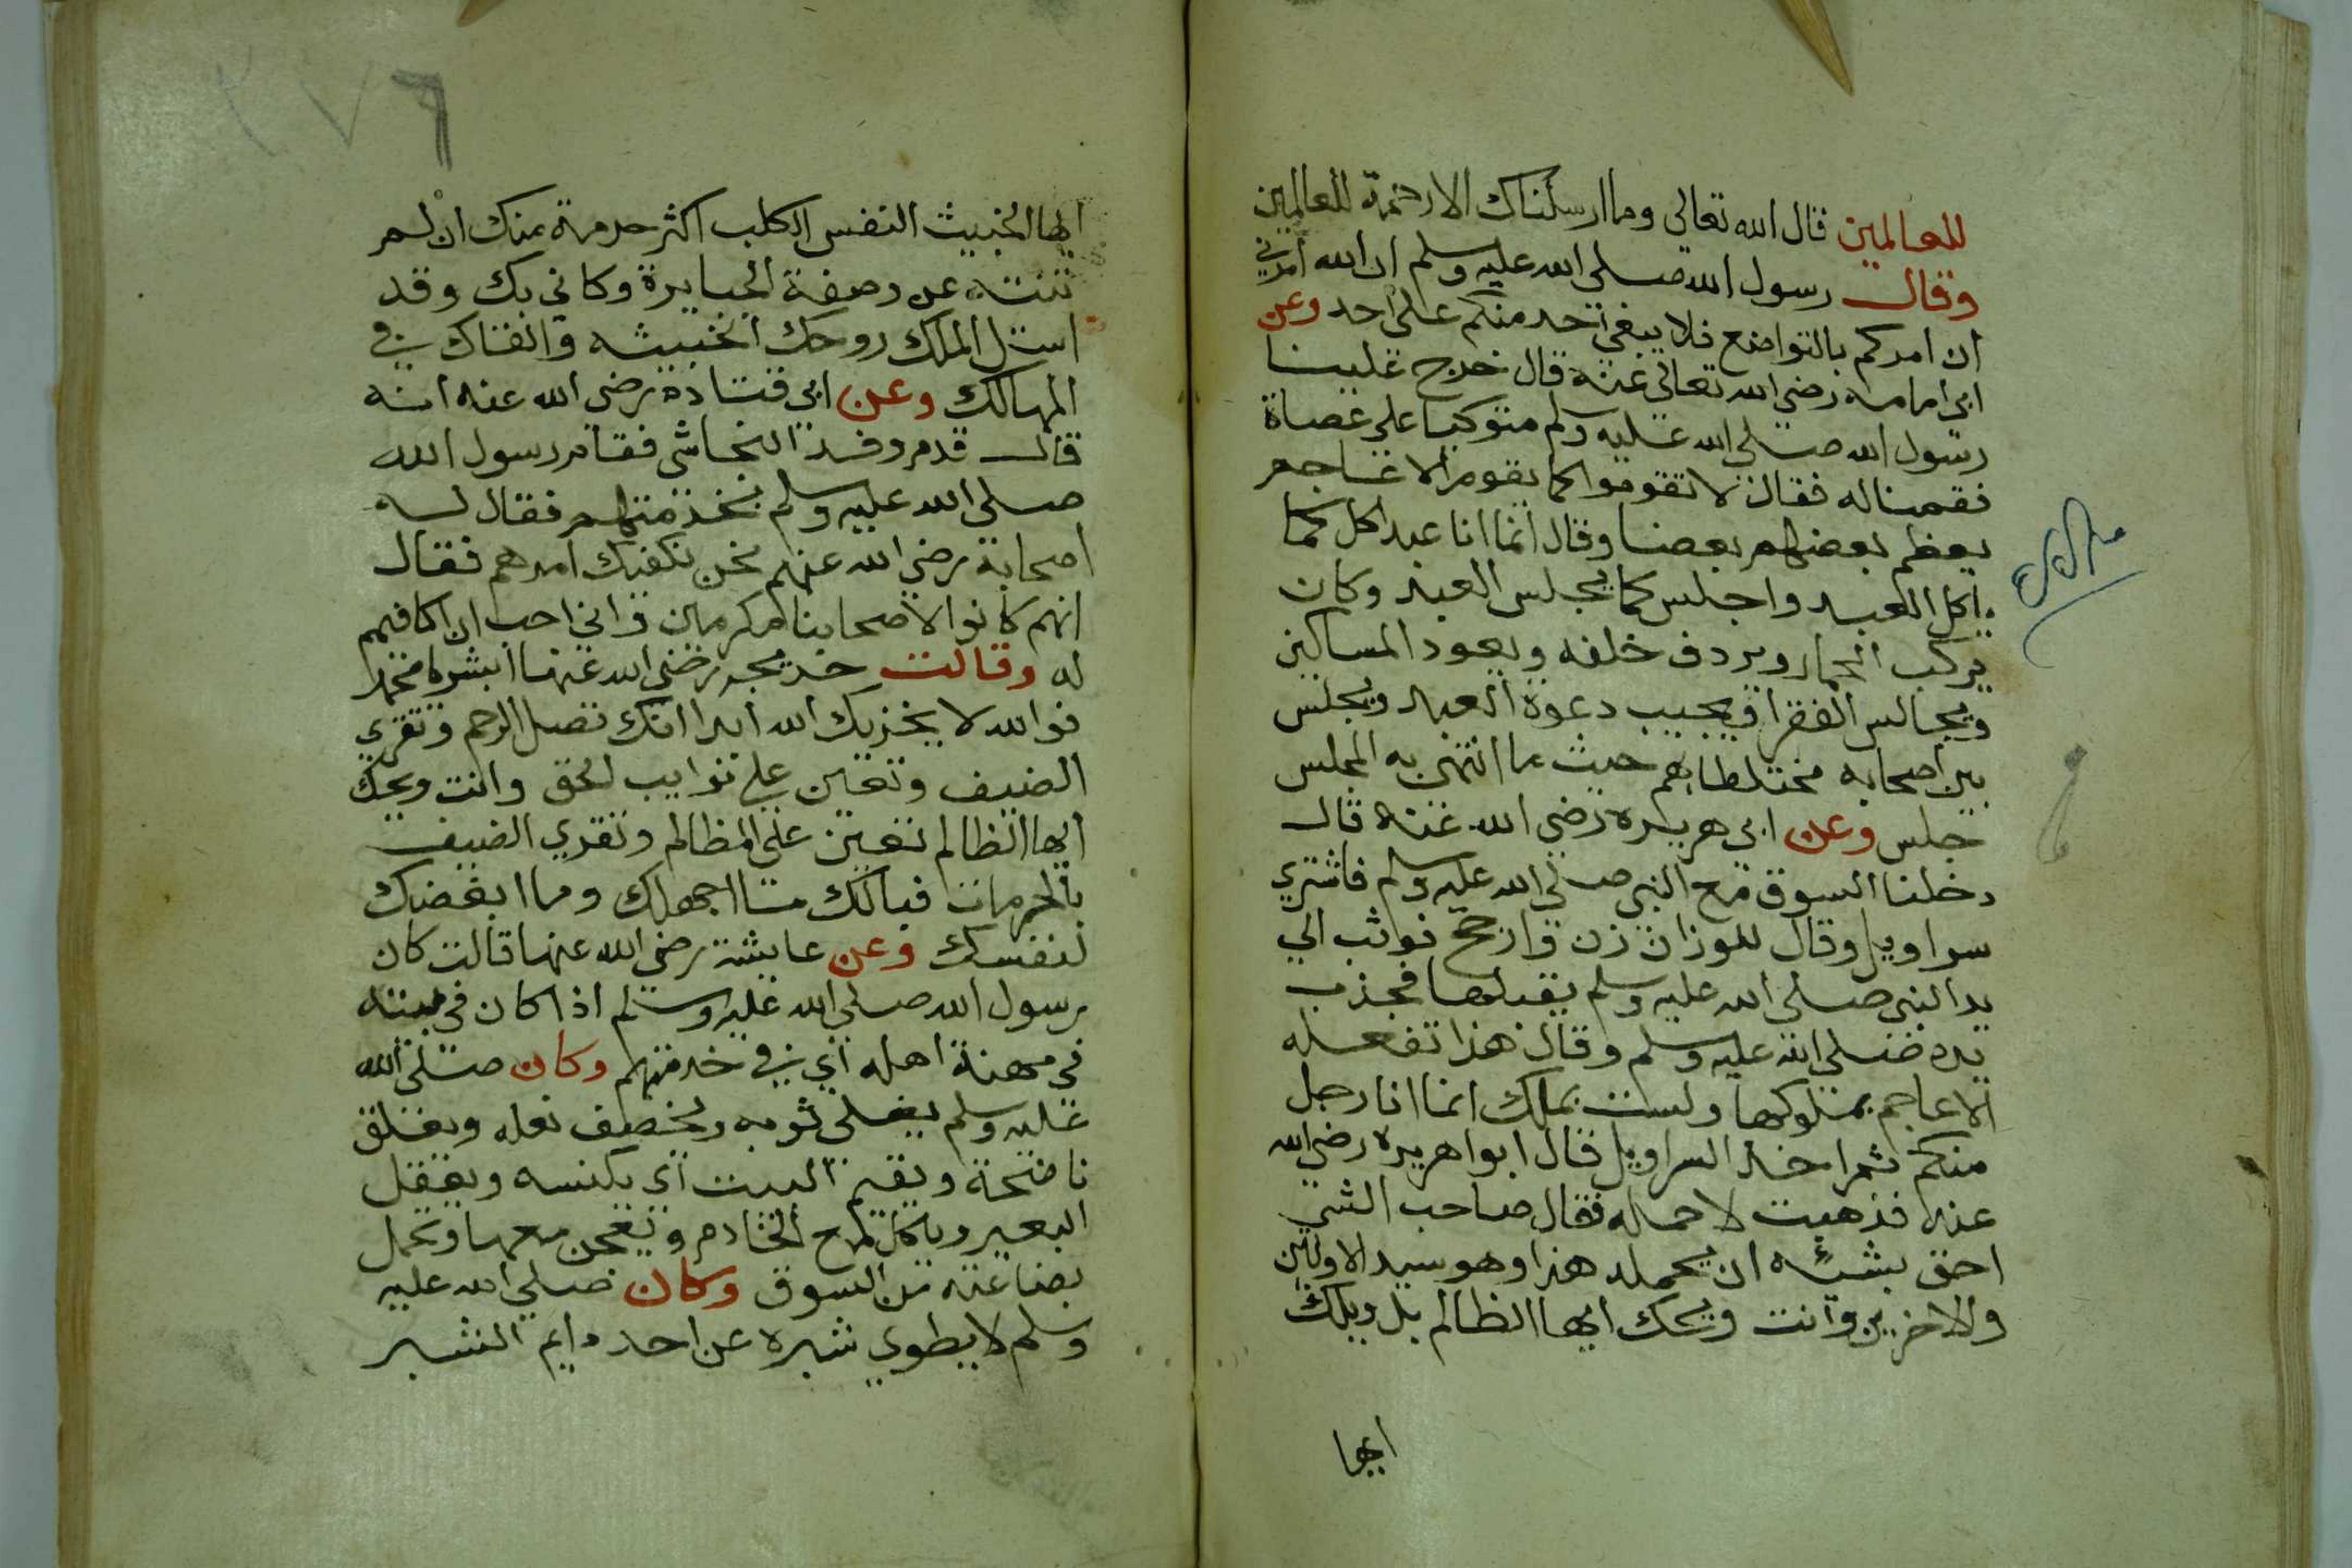 للعالمين قال الله تعالى وما ارسلناك الا رحمة للعالمين
وقال رسول الله صلى الله عليه وسلم ان الله امرني
ان امركم بالتواضع فلا يبغي احد منكم على احد وعن
ابي امامه رضي الله تعالى عنه قال خرج علينا
رسول الله صلى الله عليه وسلم متوكيا على عصاة
فقمنا له فقال لا تقوموا كما يقوم الاعاجم
يعظم بعضهم بعضا وقال انما انا عبد اكل كما
ياكل العبد واجلس كما يجلس العبد وكان
يركب الحمار ويردف خلفه ويعود المساكين
ويجالس الفقرا ويجيب دعوة العبد ويجلس
بين اصحابه مختلطا بهم حيث ما انتهى به المجلس
جلس وعن ابي هريره رضي الله عنه قال
دخلنا السوق مع النبي صلى الله عليه وسلم فاشتري
سراويل وقال للوزان زن وارجح فوثب الي
يد النبي صلى الله عليه وسلم يقبلها فجذب
يده صلى الله عليه وسلم وقال هذا تفعله
الاعاجم بملوكها ولست بملك انما انا رجل
منكم ثم اخذ السراويل قال ابوا هريره رضي الله
عنه فذهبت لاحمله فقال صاحب الشي
احق بشيئه ان يحمله هذا وهو سيد الاولين
والاخرين وانت ويحك ايها الظالم بل ويلك
ايها
٢٧٦
ايها الخبيث النفس الكلب اكثر حرمة منك ان لم
تنته عن وصفة الجبابرة وكاني بك وقد
استل الملك روحك الخبيثه والقاك في
المهالك وعن ابي قتادة رضي الله عنه انه
قال قدم وفد النجاشي فقام رسول الله
صلى الله عليه وسلم بخدمتهم فقال له
اصحابه رضي الله عنهم نحن نكفيك امرهم فقال
انهم كانوا لاصحابنا مكرمين واني احب ان اكافيهم
له وقالت خديجه رضي الله عنها ابشر يا محمد
فوالله لا يخزيك الله ابدا انك تصل الرحم وتقري
الضيف وتعين على نوايب الحق وانت ويحك
ايها الظالم تعين على المظالم وتقري الضيف
بالحرمان فيالك ما اجهلك وما ابغضك
لنفسك وعن عايشة رضي الله عنها قالت كان
رسول الله صلى الله عليه وسلم اذا كان في بيته
في مهنة اهله اي في خدمتهم وكان صلى الله
عليه وسلم يفلي ثوبه ويخصف نعله ويعلق
ناضحة ويقيم البيت اي يكنسه ويعقل
البعير وياكل مع الخادم ويعجن معها ويحمل
بضاعته من السوق وكان صلى الله عليه
وسلم لا يطوي شبره عن احد دايم البشر